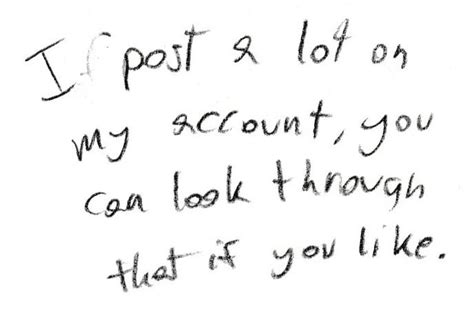 I post a lot on
my account, you
can look through
that if you like.